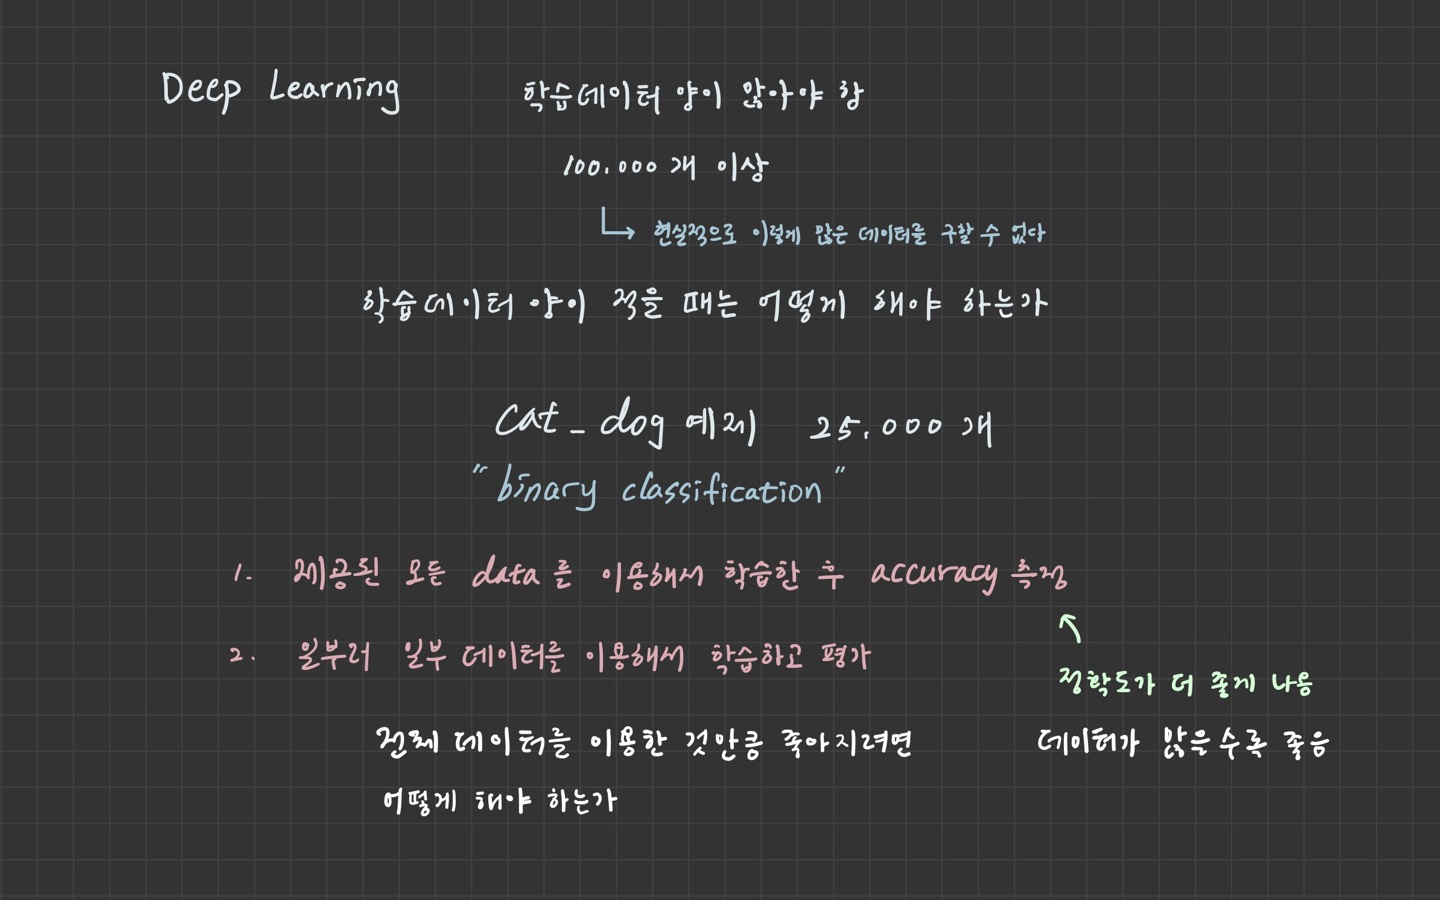 Deep Learning 학습데이터 양이 많아야 함
100.000개 이상
현실적으로 이렇게 많은 데이터를 구할 수 없다
학습데이터 양이 적을 때는 어떻게 해야 하는가
cat_dog 예제 25.000개
"binary classification"
1. 제공된 모든 data를 이용해서 학습한 후 accuracy 측정
2. 일부러 일부 데이터를 이용해서 학습하고 평가
정확도가 더 좋게 나옴
전체 데이터를 이용한 것만큼 좋아지려면
데이터가 많을수록 좋음
어떻게 해야 하는가